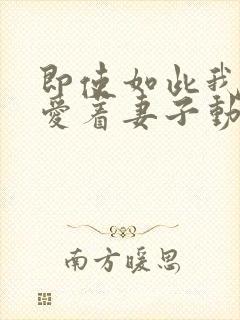 即使如此我
爱着妻子動
南方暖思